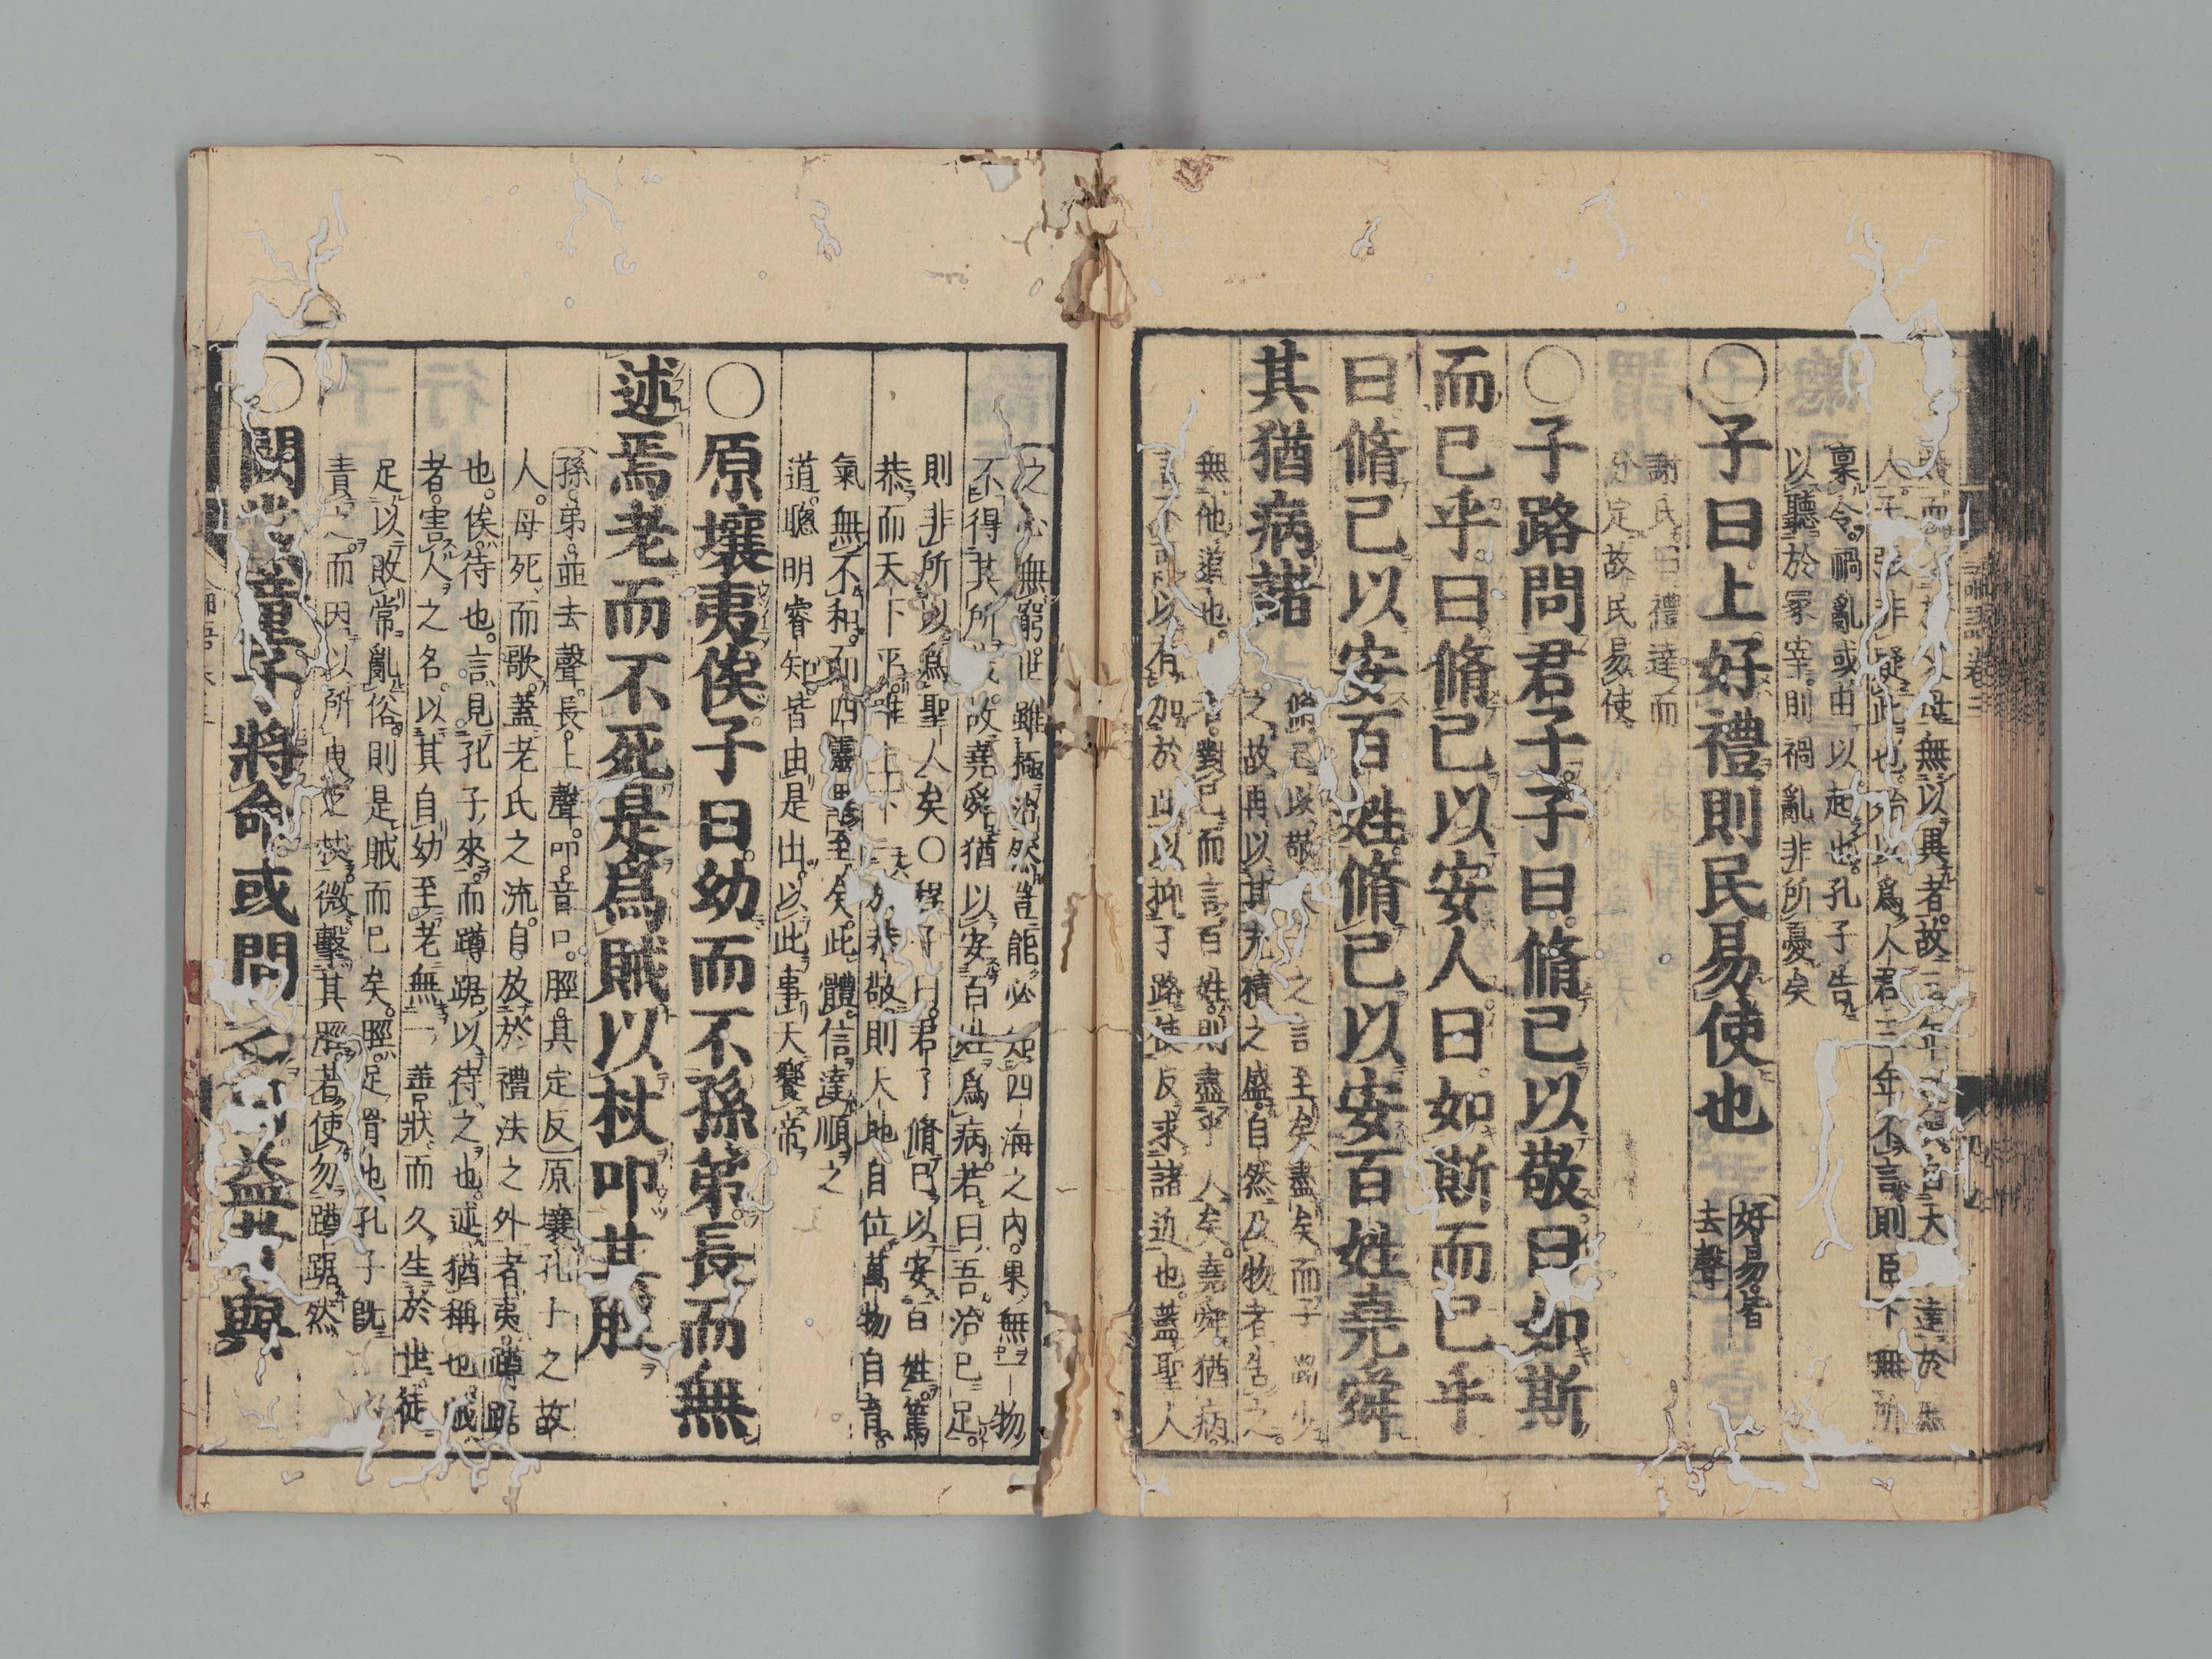 人子張非疑此也殆以爲人君三年不言則臣下無所
稟令禍亂或由以起也孔子告
以聽於冢宰則禍亂非所憂矣
〇子曰上好禮則民易使也
好易皆
去聲
謝氏曰禮達而
分定故民易使
〇子路問君子子曰脩己以敬曰如斯
而已乎曰脩己以安人曰如斯而已乎
曰脩己以安百姓脩己以安百姓堯舜
其猶病諸
脩己以敬之言至矣盡矣而子路少
之故再以其充積之盛自然及物者告之
無他道也對己而言百姓則盡乎人矣堯舜猶病
以有加於此以抑子路使反求諸近也蓋聖人
之心無窮世雖極治然豈能必知四海之内果無一物
不得其所故堯舜猶以安百姓爲病若曰吾治已足
則非所以爲聖人矣〇程子曰君子脩己以安百姓篤
恭而天下平唯上下一於恭敬則天地自位萬物自育
氣無不和而四靈畢至矣此體信達順之
道聰明睿知皆由是出以此事天饗帝
〇原壤夷俟子曰幼而不孫弟長而無
述焉老而不死是爲賊以杖叩其脛
孫弟並去聲長上聲叩音口脛其定反原壤孔子之故
人母死而歌蓋老氏之流自放於禮法之外者夷蹲踞
也俟待也言見孔子來而蹲踞以待之也述猶稱也賊
者害人之名以其自幼至老無一善狀而久生於世徒
足以敗常亂俗則是賊而已矣脛足骨也孔子既
責之而因以所曳之杖微擊其脛若使勿蹲踞然
〇闕黨童子將命或問之曰益者與